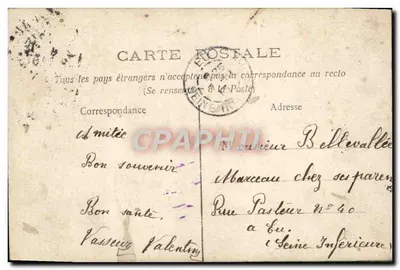 CARTE POSTALE
Tous les pays étrangers n'acceptent pas la correspondance au recto
(Se renseigner à la Poste)
Correspondance
Adresse
Amitée
Bon souvenir
Bon santé.
Vasseur Valentin
Monsieur Bellevallée
Marceau chez ses parents
Rue Pasteur N° 40
a Eu.
(Seine Inférieure)
CPAPHIL.COM